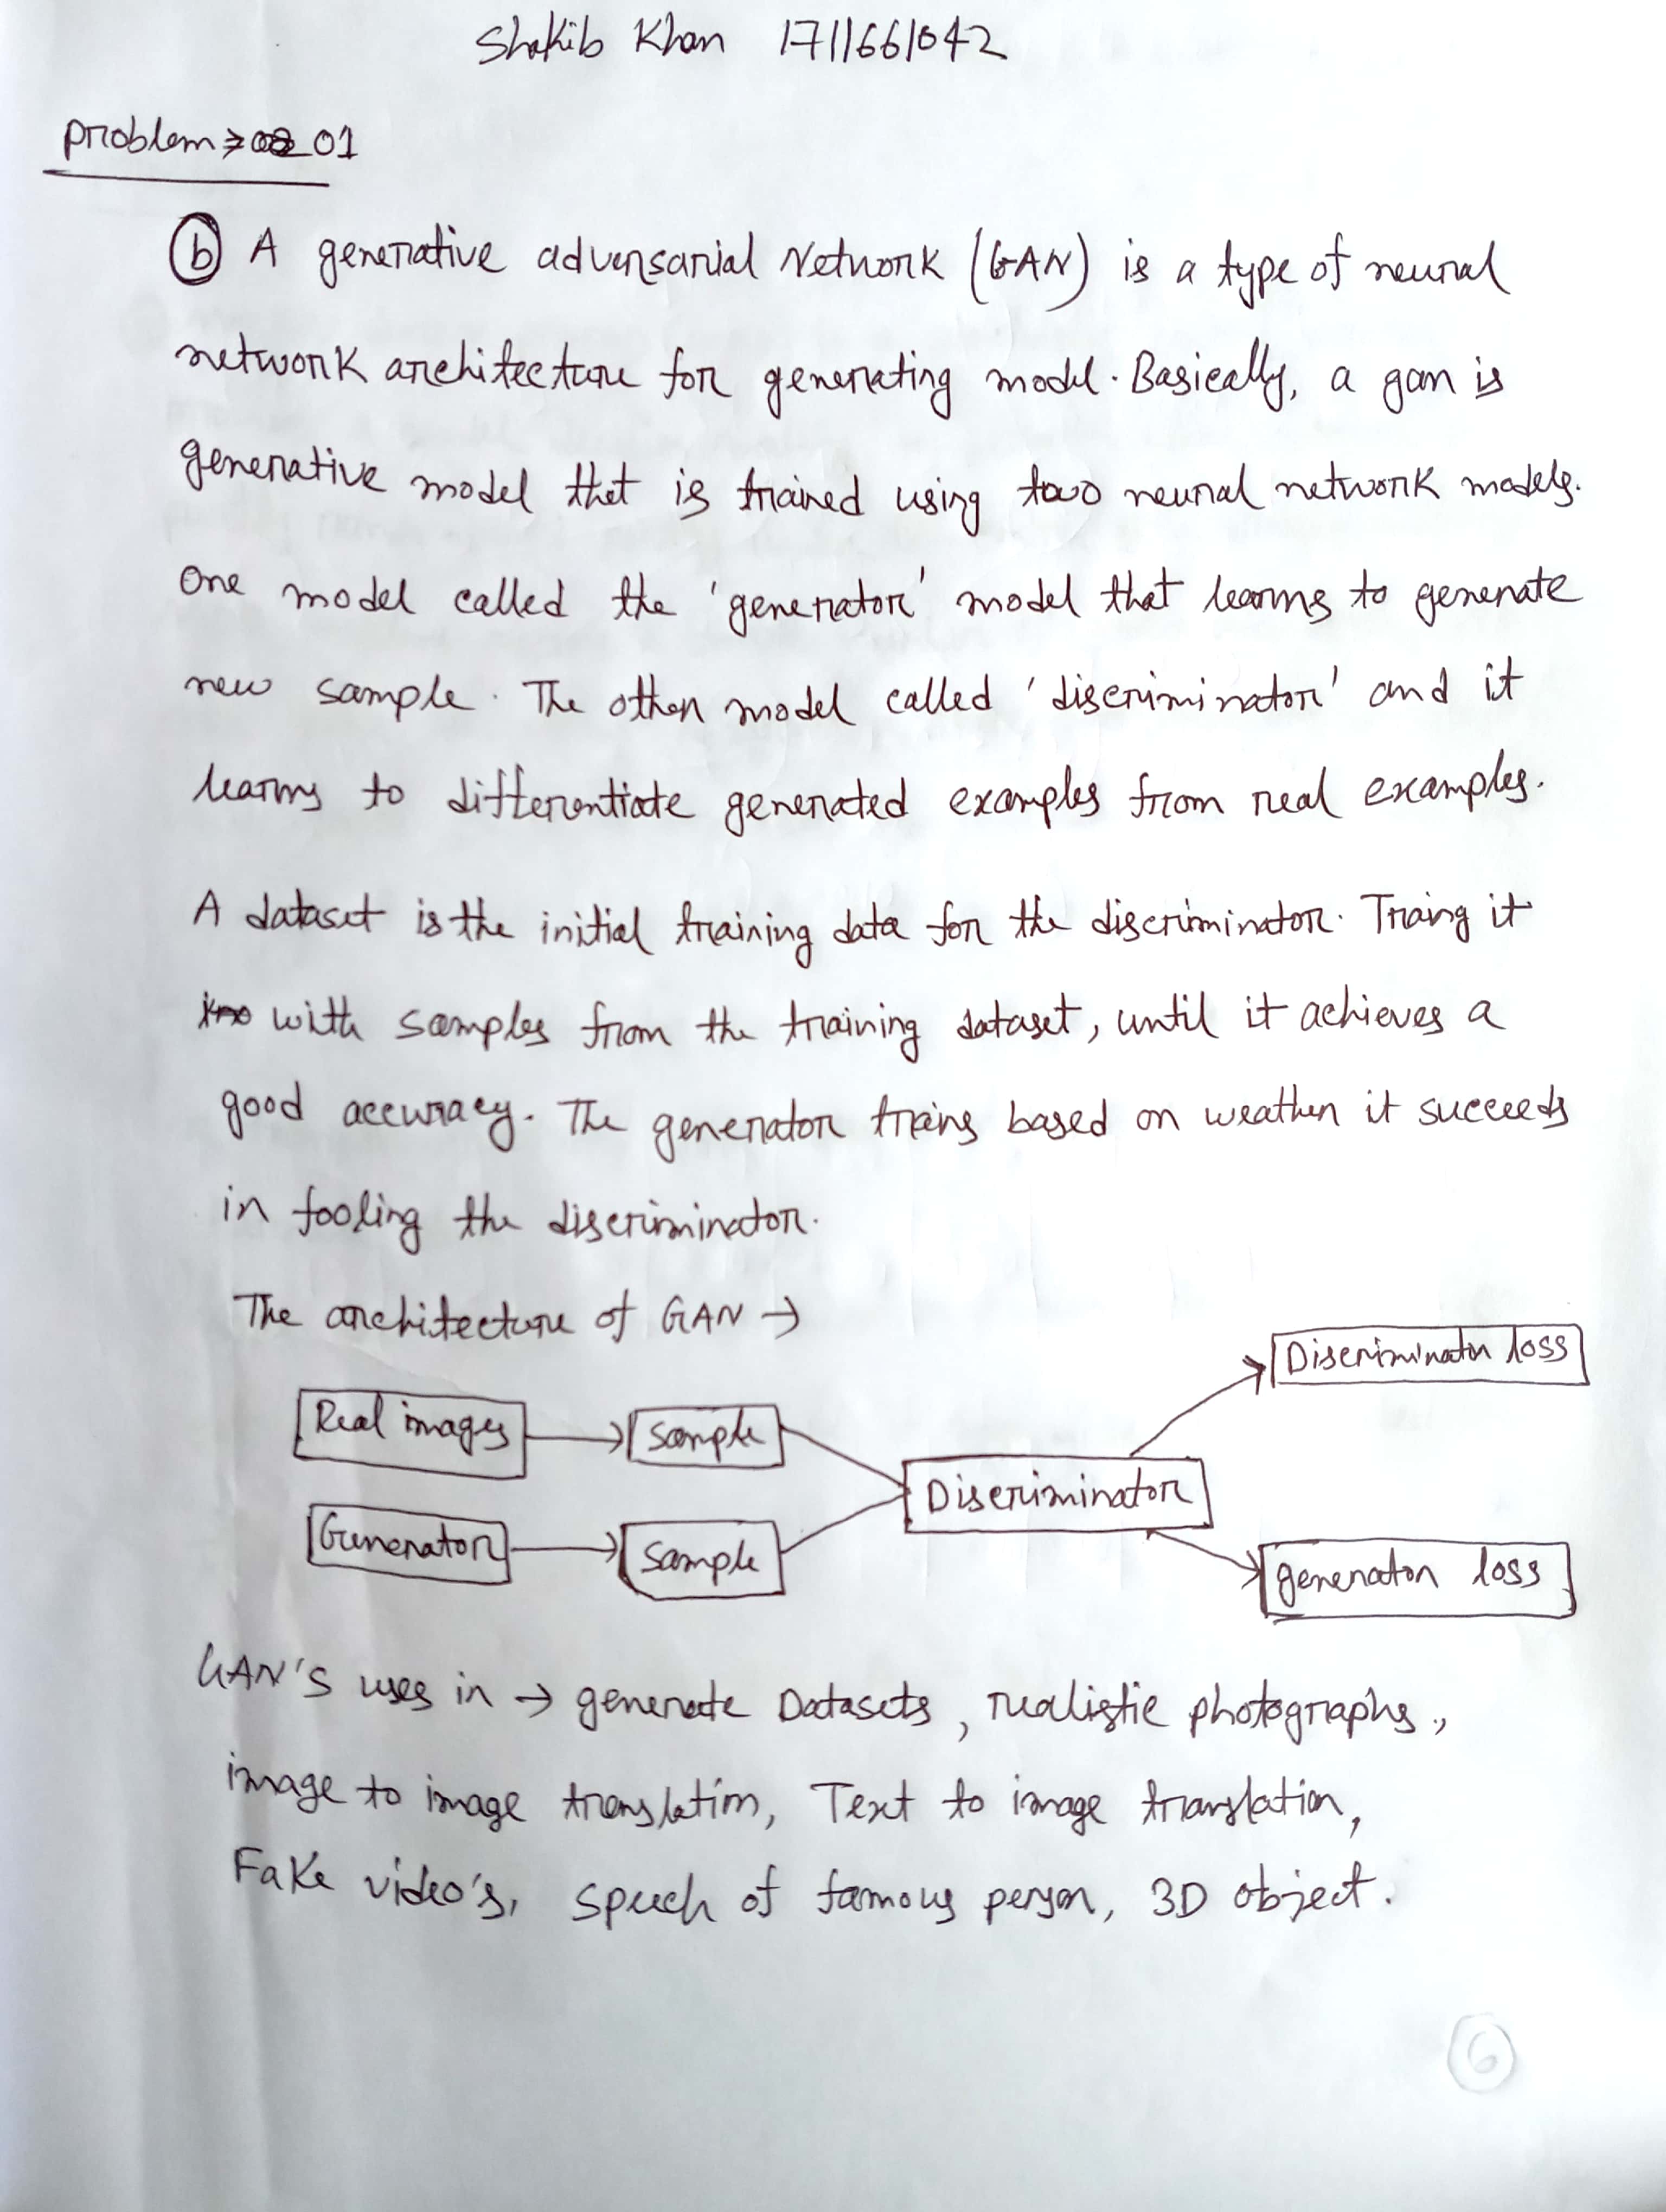 Shakib Khan 1711661042
Problem ⇒ 01
(b) A generative adversarial Network (GAN) is a type of neural
network architecture for generating model. Basically, a gan is
generative model that is trained using two neural network models.
One model called the 'generator' model that learns to generate
new sample. The other model called 'discriminator' and it
learns to differentiate generated examples from real examples.
A dataset is the initial training data for the discriminator. Traing it
with samples from the training dataset, until it achieves a
good accuracy. The generator trains based on weather it succeeds
in fooling the discriminator.
The architecture of GAN →
Discriminator loss
Real images
Sample
Discriminator
Generator
Sample
generator loss
GAN'S uses in → generate Datasets, realistic photographs,
image to image translation, Text to image translation,
Fake video's, speech of famous person, 3D object.
6